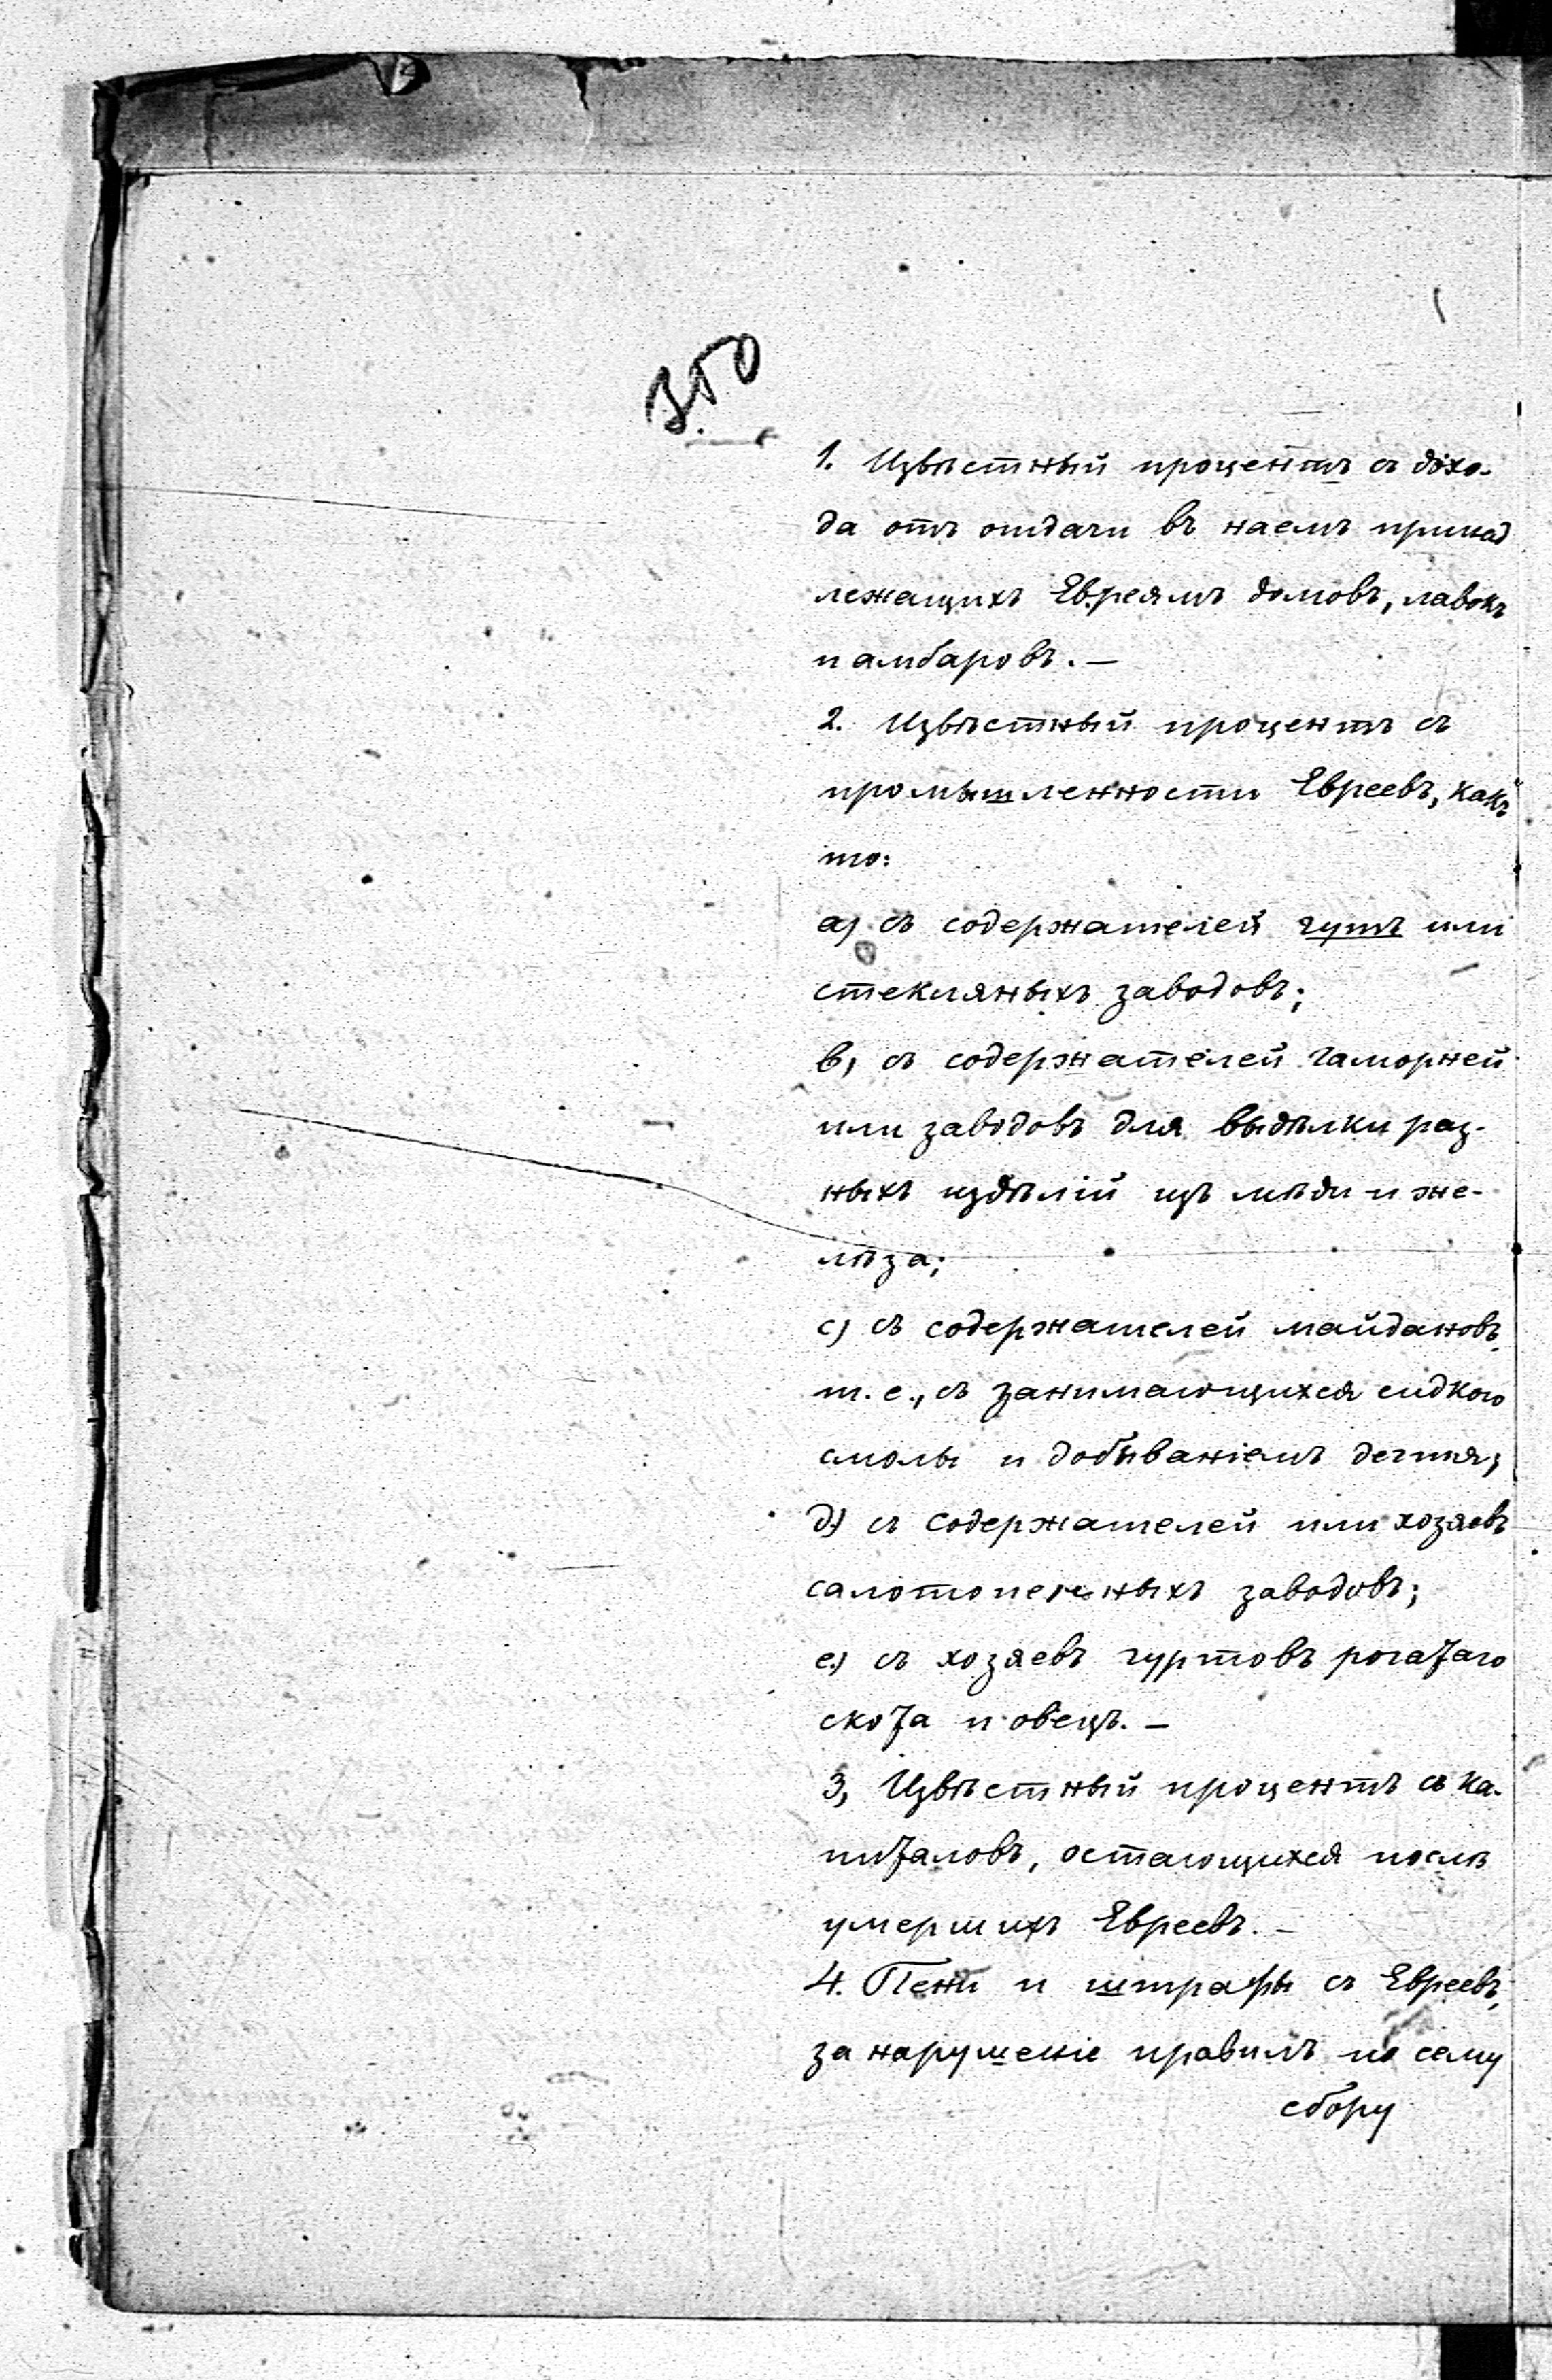 350
1. Извѣстный процентъ съ дохо-
да отъ отдачи въ наемъ принад
лежащихъ Евреямъ домовъ, лавокъ
и амбаровъ. —
2. Извѣстный процентъ съ
промышленности Евреевъ, какъ
то:
а) съ содержателей гутъ или
стекляныхъ заводовъ;
в) съ содержателей гаморней
или заводовъ для выдѣлки раз-
ныхъ издѣлій изъ мѣди и же-
лѣза;
с) съ содержателей майдановъ,
т. е., съ занимающихся сидкою
смолы и добываніемъ дегтя;
д) съ содержателей или хозяевъ
салотопенныхъ заводовъ;
е) съ хозяевъ гуртовъ рогатаго
скота и овецъ. —
3, Извѣстный процентъ съ ка-
питаловъ, остающихся послѣ
умершихъ Евреевъ. —
4. Пени и штрафы съ Евреевъ,
за нарушеніе правилъ по сему
сбору